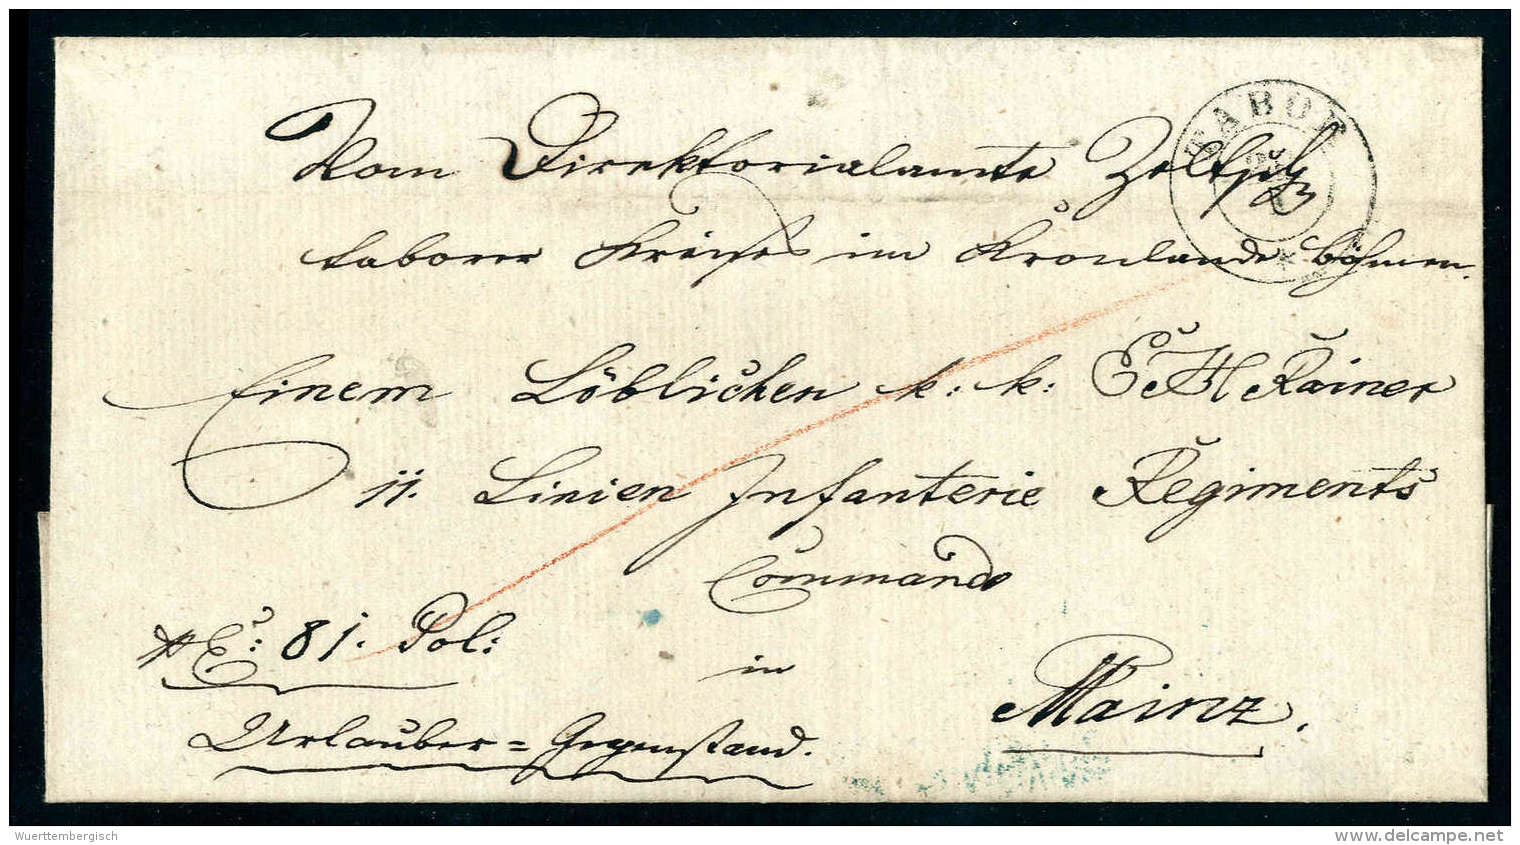 TABOR
Vom Direktorialamte
taborer Kreises im Kronlande böhmen.
Einem Löblichen k: k: E. H. Rainer
11. Linien Infanterie Regiments
Commando
81. Pol:
in
Mainz.
Urlauber=Gegenstand.
Wuerttembergisch
delcampe.net